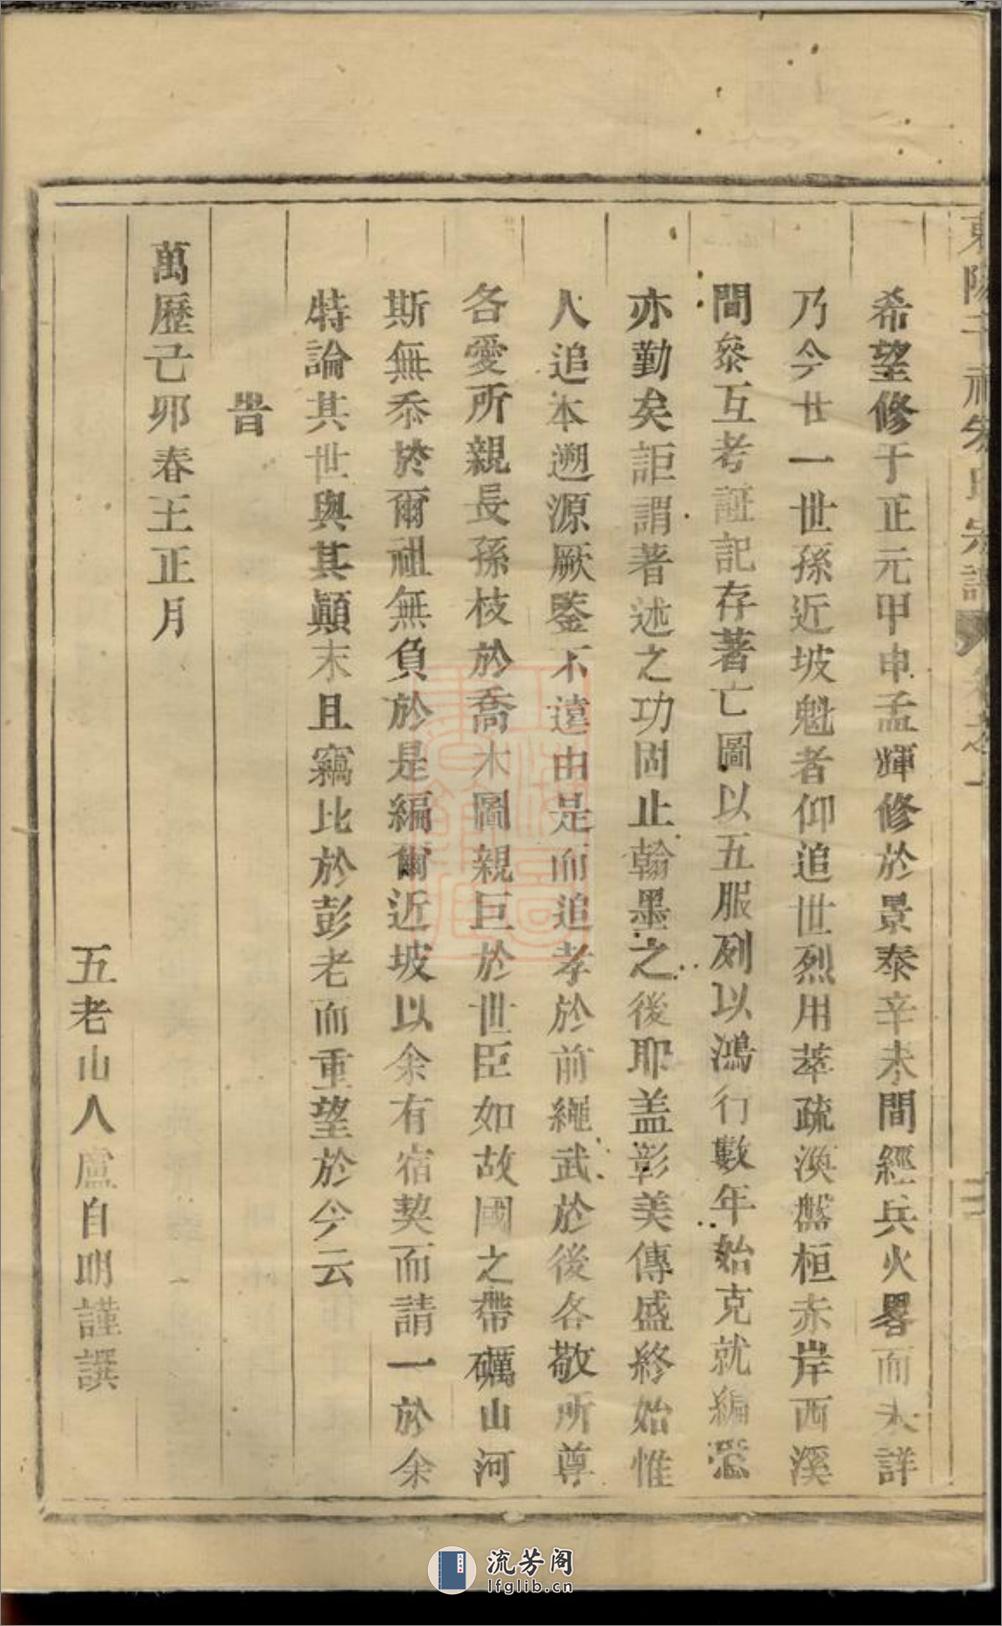 希望修于正元甲申孟輝修於景泰辛未間經兵火畧而未詳
乃今廿一世孫近坡魁者仰追世烈用萃疏渙盤桓赤岸西溪
間叅互考証記存著亡圖以五服列以鴻行數年始克就編
亦勤矣詎謂著述之功固止翰墨之後耶盖彰美傳盛終始惟
人追本遡源厥鑒不遠由是而追孝於前繩武於後各敬所尊
各愛所親長孫枝於喬木圖親臣於世臣如故國之帶礪山河
斯無忝於爾祖無負於是編爾近坡以余有宿契而請一於余
特論其世與其顚末且竊比於彭老而重望於今云
旹
萬歷己卯春王正月
五老山人盧自明謹譔
流芳阁
lfglib.cn